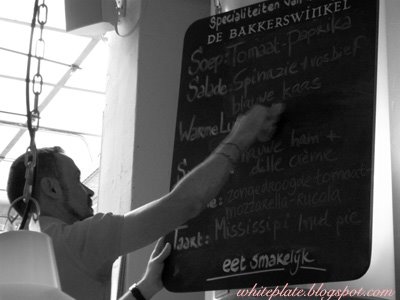 Specialiteiten van
DE BAKKERSWINKEL
Soep: Tomaat-Paprika
Salade: Spinazie + rosbief
blauwe kaas
Warme
ham +
dille crème
zongedroogde-tomaat-
mozzarella-rucola
Taart: Mississipi mud pie
eet smakelijk
whiteplate.blogspot.com